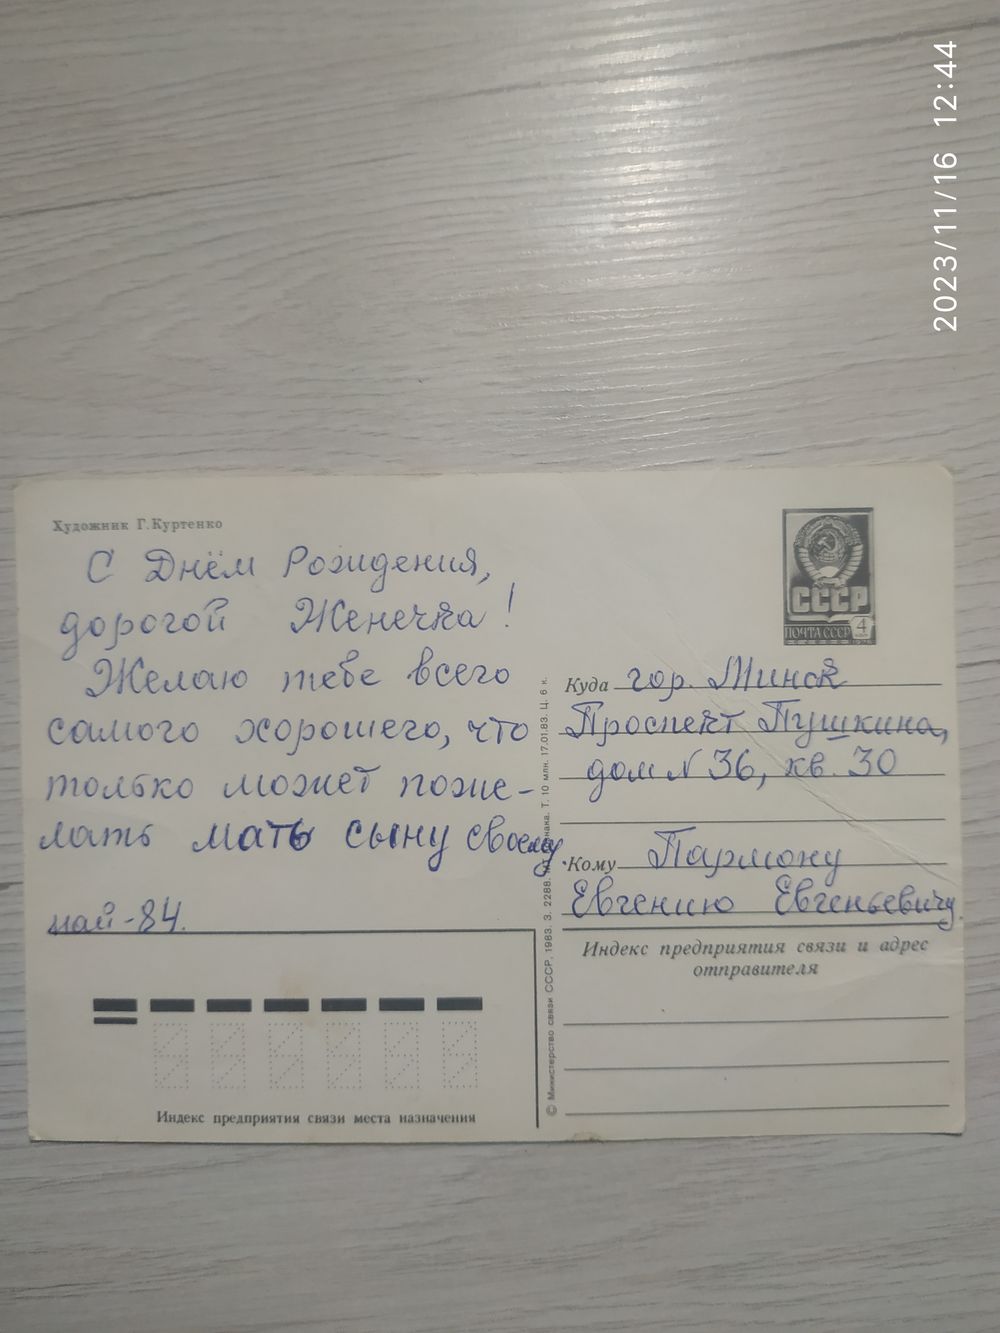 2023/11/16 12:44
Художник Г. Куртенко
С Днём Рождения,
дорогой Женечка!
Желаю тебе всего
самого хорошего, что
только может поже-
лать мать сыну своему.
май-84.
СССР
ПОЧТА СССР 4
Куда гор. Минск
Проспект Пушкина,
дом N 36, кв. 30
Кому Пармону
Евгению Евгеньевичу.
Индекс предприятия связи и адрес
отправителя
Индекс предприятия связи места назначения
© Министерство связи СССР, 1983. З. 2288. Т. 10 млн. 17.01.83. Ц. 6 к.